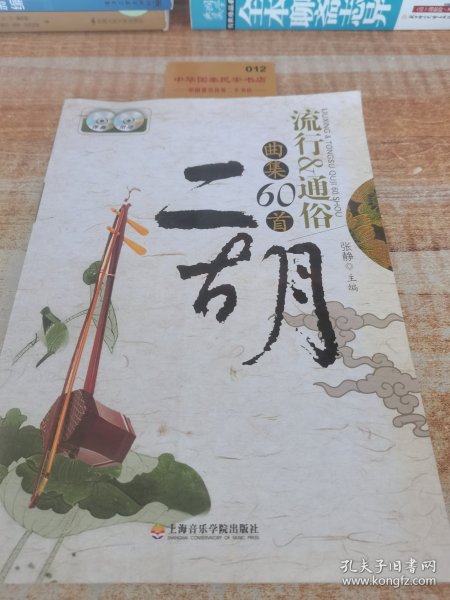 全本聊斋志异
012
中华国乐民乐书店
流行&通俗
LIUXING & TONGSU QUJI 60 SHOU
曲集
60
首
二胡
张静◎主编
上海音乐学院出版社
SHANGHAI CONSERVATORY OF MUSIC PRESS
孔夫子旧书网
www.kongfz.com